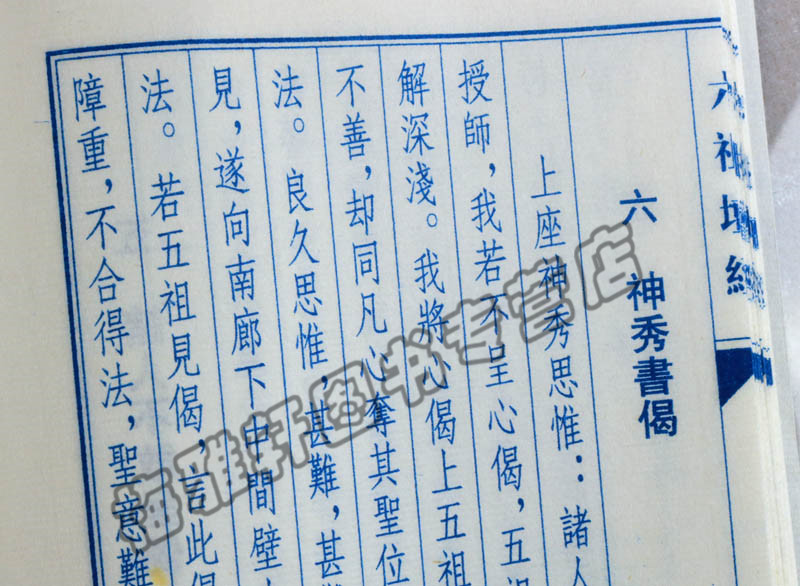 六祖壇經
六 神秀書偈
上座神秀思惟：諸人
授師，我若不呈心偈，五
解深淺。我將心偈上五祖
不善，却同凡心奪其聖位
法。良久思惟，甚難，甚
見，遂向南廊下中間壁
法。若五祖見偈，言此偈
障重，不合得法，聖意難
梅雅轩图书专营店